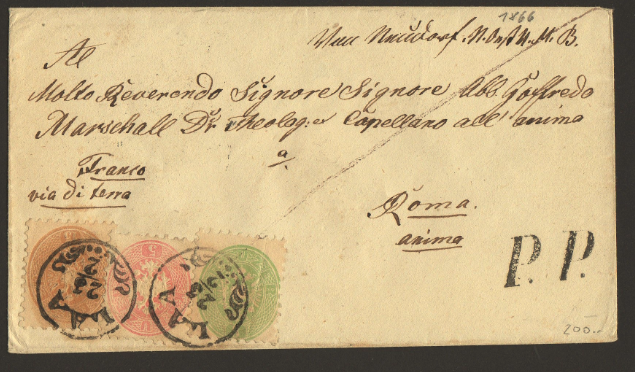 1866
Al
Molto Reverendo Signore Signore Abb. Goffredo
Marschall Dr Theolog: e Capellano all' anima
a
Franco
via di terra
Roma.
anima
P. P.
LAA
23/2
LAA
23/2
200.-